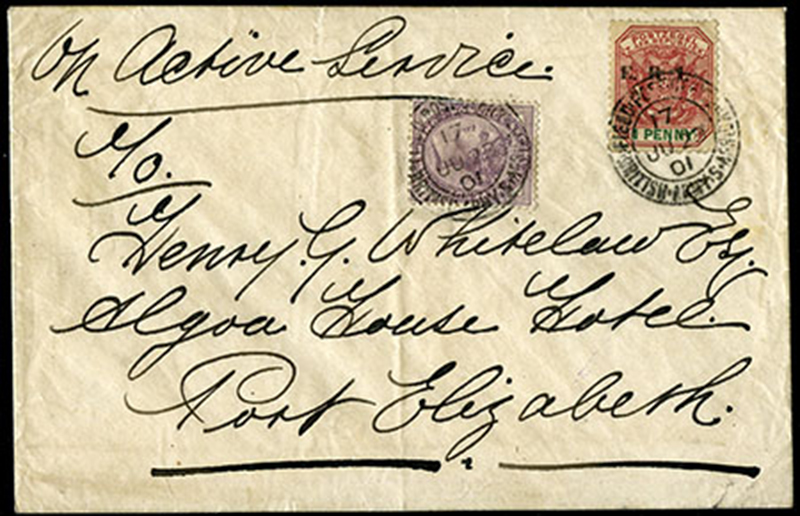 On Active Service.
To.
Henry. G. Whitelaw Esq.
Algoa House Hotel.
Port Elizabeth.
POSTZEGEL
E. R. I.
1 PENNY
FIELD POST OFFICE
BRITISH ARMY S. AFRICA
17
JU
01
17
JU
01